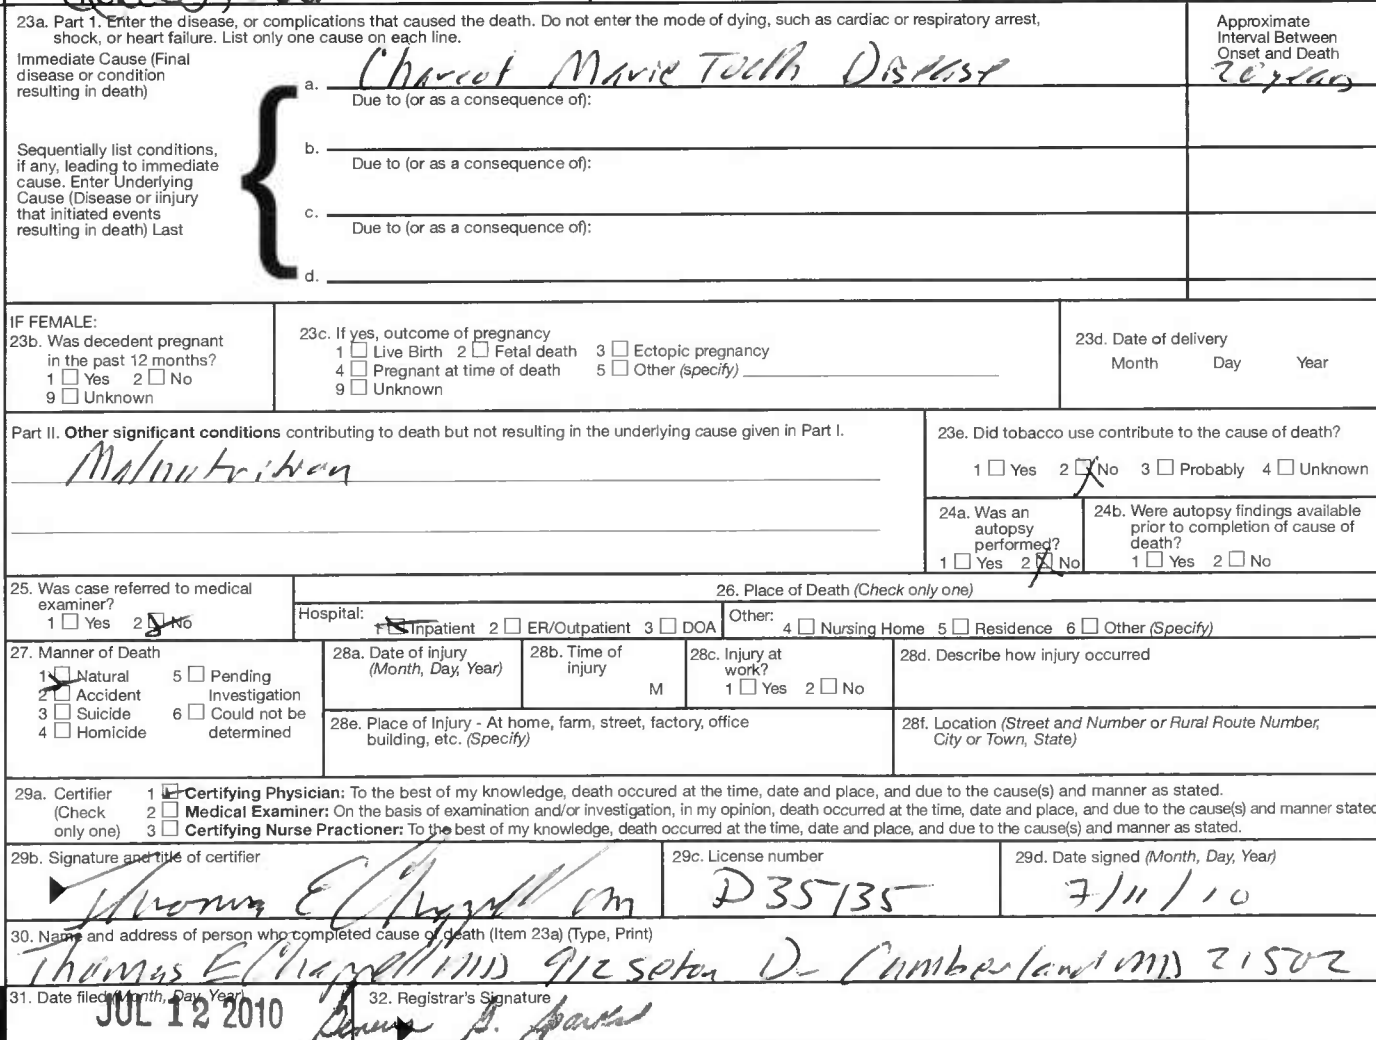 23a. Part 1. Enter the disease, or complications that caused the death. Do not enter the mode of dying, such as cardiac or respiratory arrest,
shock, or heart failure. List only one cause on each line.
Approximate
Interval Between
Onset and Death
Immediate Cause (Final
disease or condition
resulting in death)
a. Charcot Marie Tooth Disease
20 years
Due to (or as a consequence of):
Sequentially list conditions,
if any, leading to immediate
cause. Enter Underlying
Cause (Disease or iinjury
that initiated events
resulting in death) Last
b.
Due to (or as a consequence of):
c.
Due to (or as a consequence of):
d.
IF FEMALE:
23b. Was decedent pregnant
in the past 12 months?
1 ☐ Yes 2 ☐ No
9 ☐ Unknown
23c. If yes, outcome of pregnancy
1 ☐ Live Birth 2 ☐ Fetal death 3 ☐ Ectopic pregnancy
4 ☐ Pregnant at time of death 5 ☐ Other (specify)
9 ☐ Unknown
23d. Date of delivery
Month Day Year
Part II. Other significant conditions contributing to death but not resulting in the underlying cause given in Part I.
Malnutrition
23e. Did tobacco use contribute to the cause of death?
1 ☐ Yes 2 ☒ No 3 ☐ Probably 4 ☐ Unknown
24a. Was an
autopsy
performed?
1 ☐ Yes 2 ☒ No
24b. Were autopsy findings available
prior to completion of cause of
death?
1 ☐ Yes 2 ☐ No
25. Was case referred to medical
examiner?
1 ☐ Yes 2 ☒ No
26. Place of Death (Check only one)
Hospital: 1 ☒ Inpatient 2 ☐ ER/Outpatient 3 ☐ DOA
Other: 4 ☐ Nursing Home 5 ☐ Residence 6 ☐ Other (Specify)
27. Manner of Death
1 ☒ Natural 5 ☐ Pending
2 ☐ Accident Investigation
3 ☐ Suicide 6 ☐ Could not be
4 ☐ Homicide determined
28a. Date of injury
(Month, Day, Year)
28b. Time of
injury
M
28c. Injury at
work?
1 ☐ Yes 2 ☐ No
28d. Describe how injury occurred
28e. Place of Injury - At home, farm, street, factory, office
building, etc. (Specify)
28f. Location (Street and Number or Rural Route Number,
City or Town, State)
29a. Certifier
(Check
only one)
1 ☒ Certifying Physician: To the best of my knowledge, death occured at the time, date and place, and due to the cause(s) and manner as stated.
2 ☐ Medical Examiner: On the basis of examination and/or investigation, in my opinion, death occurred at the time, date and place, and due to the cause(s) and manner stated
3 ☐ Certifying Nurse Practioner: To the best of my knowledge, death occurred at the time, date and place, and due to the cause(s) and manner as stated.
29b. Signature and title of certifier
Thomas E Chappell MD
29c. License number
D35135
29d. Date signed (Month, Day, Year)
7/11/10
30. Name and address of person who completed cause of death (Item 23a) (Type, Print)
Thomas E Chappell MD 912 Seton Dr Cumberland MD 21502
31. Date filed (Month, Day, Year)
JUL 12 2010
32. Registrar's Signature